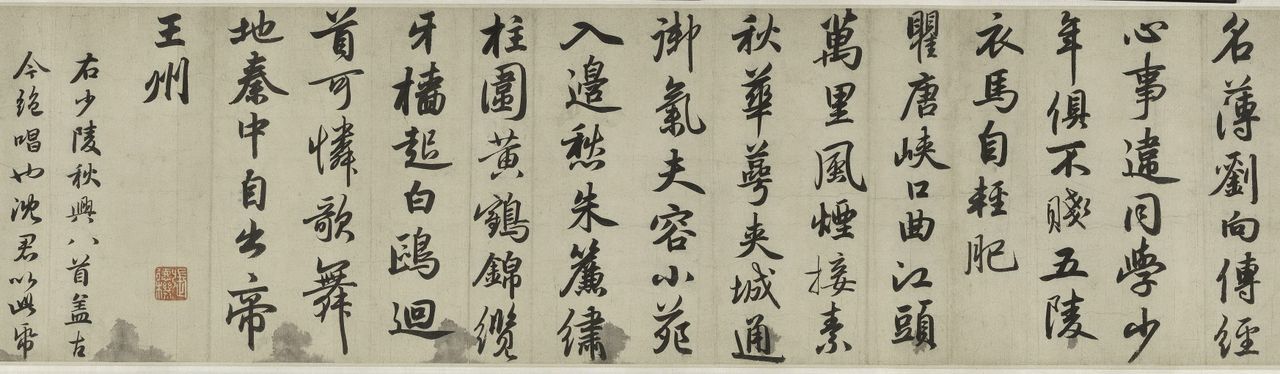 名薄劉向傳經
心事違同學少
年俱不賤五陵
衣馬自輕肥
瞿唐峽口曲江頭
萬里風煙接素
秋華萼夾城通
御氣夫容小苑
入邊愁朱簾繡
柱圍黃鶴錦纜
牙檣起白鷗迴
首可憐歌舞
地秦中自古帝
王州
右少陵秋興八首蓋古
今絶唱也沈君以此帋